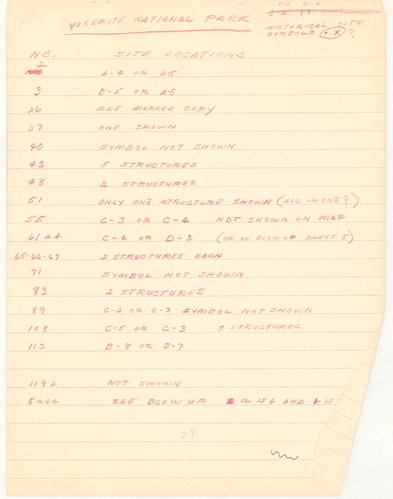 YOSEMITE NATIONAL PARK
HISTORICAL SITE
SYMBOLS (• X) ?
NO. SITE LOCATIONS
2 A-4 OR A-5
3 B-5 OR A-5
26 SEE MARKED COPY
27 ONE SHOWN
40 SYMBOL NOT SHOWN
43 5 STRUCTURES
48 2 STRUCTURES
51 ONLY ONE STRUCTURE SHOWN (ALL IN ONE?)
55 C-3 OR C-4 NOT SHOWN ON MAP
61 a & C-4 OR D-3 (OR IN BLOW UP SHEET 5)
65-66-67 2 STRUCTURES EACH
71 SYMBOL NOT SHOWN
83 2 STRUCTURES
89 C-2 OR C-3 SYMBOL NOT SHOWN
108 C-5 OR C-3 3 STRUCTURES
113 B-8 OR B-7
119 NOT SHOWN
SEE BLOW UP AND
39